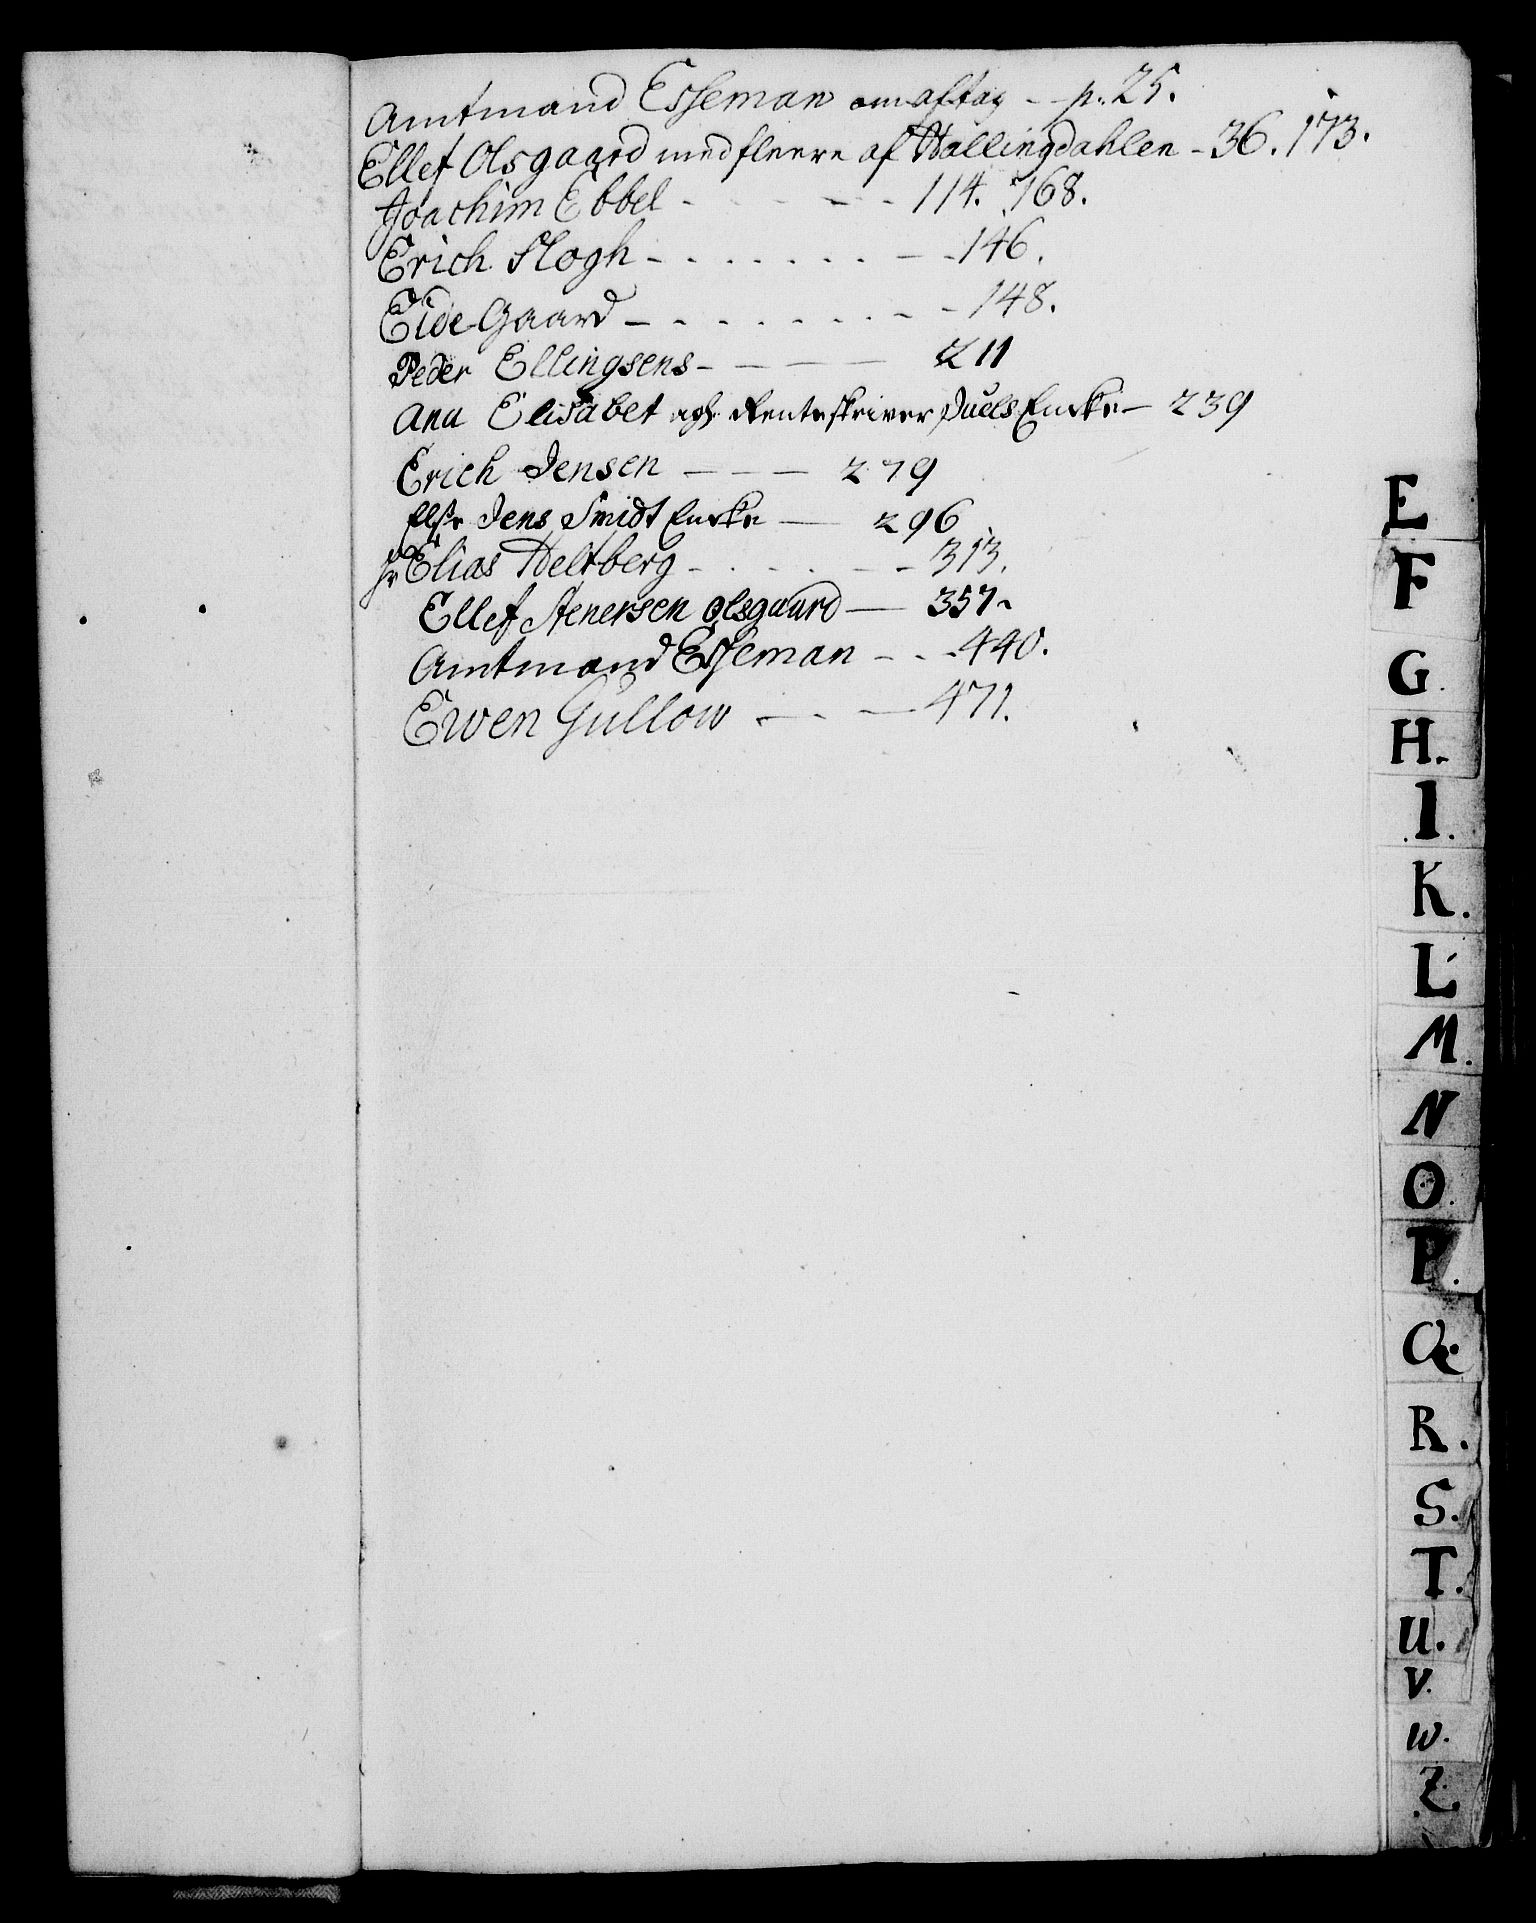 Amtmand Esseman om aftag - - p. 25.
Ellef Olsgaard med fleere af Hallingdahlen - 36. 173.
Joachim Ebbel - - - - - 114. 168.
Erich Slogh - . . . . . . - - 146.
Eide-Gaard - - . . . . . - - 148.
Peder Ellingsens - - - - 211
Ana Elisabet Renteskriver Juels Encke - 239
Erich Jensen - - - 279
Else Jens Smidt Encke - 296
hr Elias Deltberg - . . . . - - 313.
Ellef Stenersen Olsgaard - 357
Amtmand Esseman - - . 440.
Ewen Gullow - . - 471.
E
F
G.
H.
I.
K.
L
M.
N
O
P.
Q
R.
S.
T.
U.
V.
W.
Z.